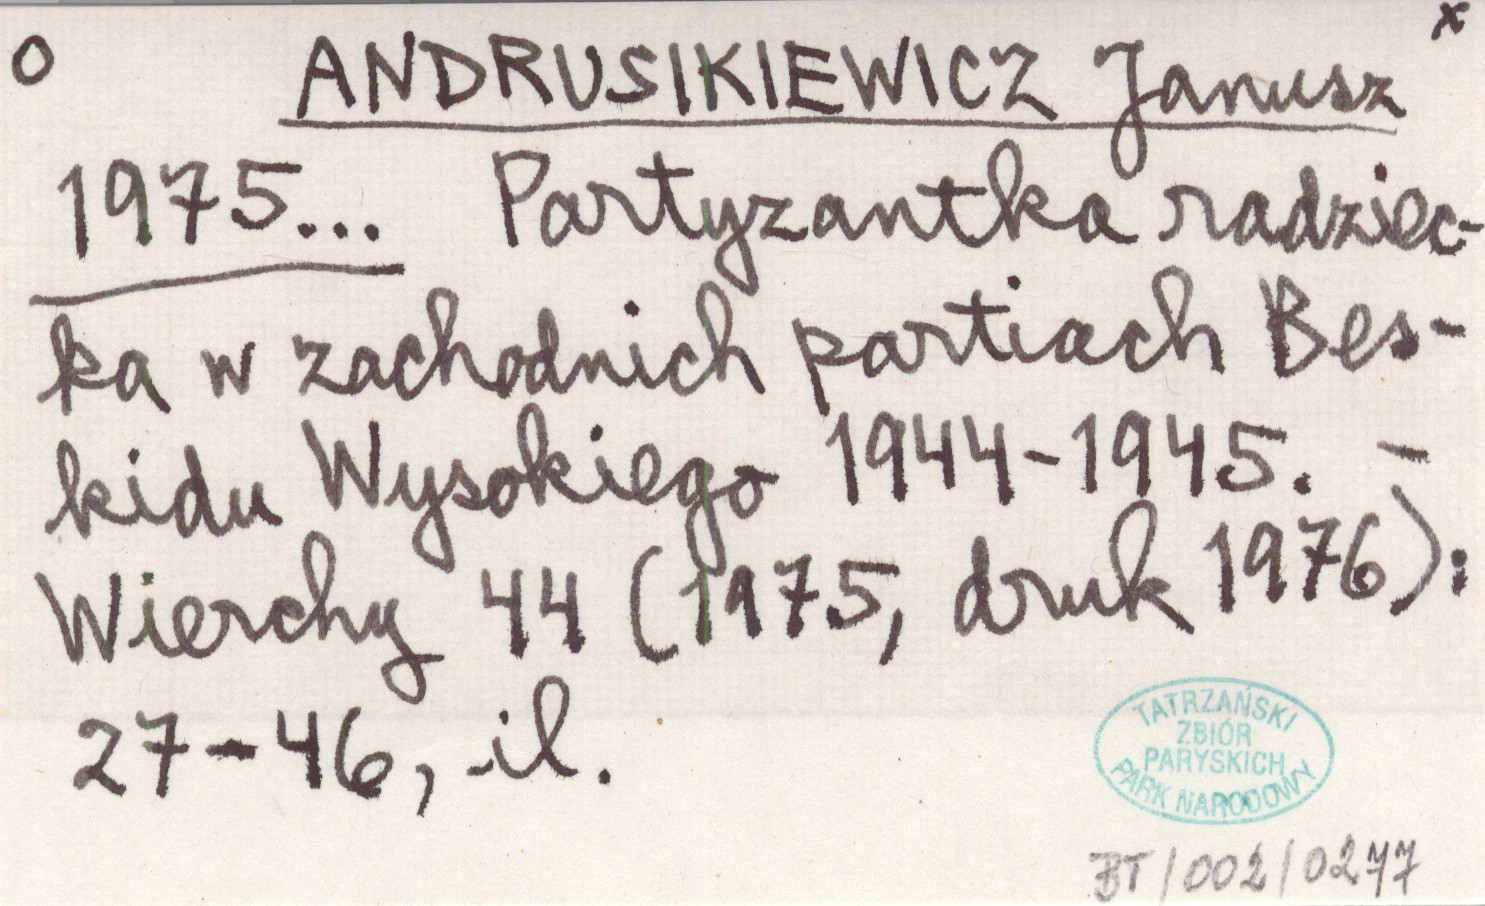 O ANDRUSIKIEWICZ Janusz x
1975... Partyzantka radziec-
ka w zachodnich partiach Bes-
kidu Wysokiego 1944-1945. -
Wierchy 44 (1975, druk 1976):
27-46, il.
TATRZAŃSKI
ZBIÓR
PARYSKICH
PARK NARODOWY
BT/002/0277